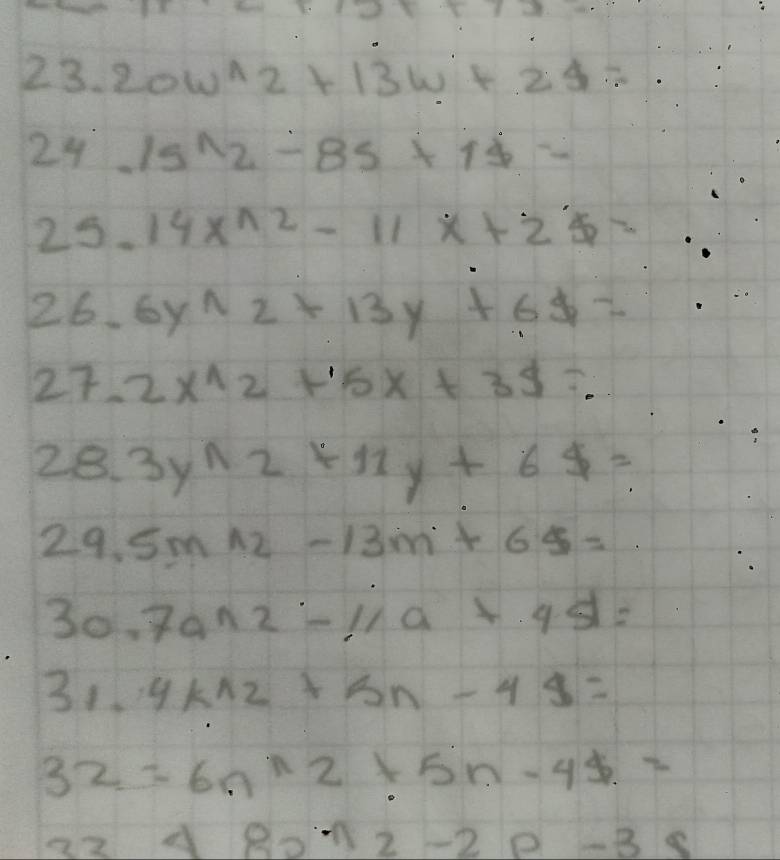 23. 20w^2 + 13w + 2$ =
24. 15^2 - 8s + 1$ =
25. 14x^2 - 11x + 2$ =
26. 6y^2 + 13y + 6$ =
27. 2x^2 + 5x + 3$ =
28. 3y^2 + 11y + 6$ =
29. 5m^2 - 13m + 6$ =
30. 7a^2 - 11a + 4$ =
31. 4k^2 + 5n - 4$ =
32 = 6n^2 + 5n - 4$ =